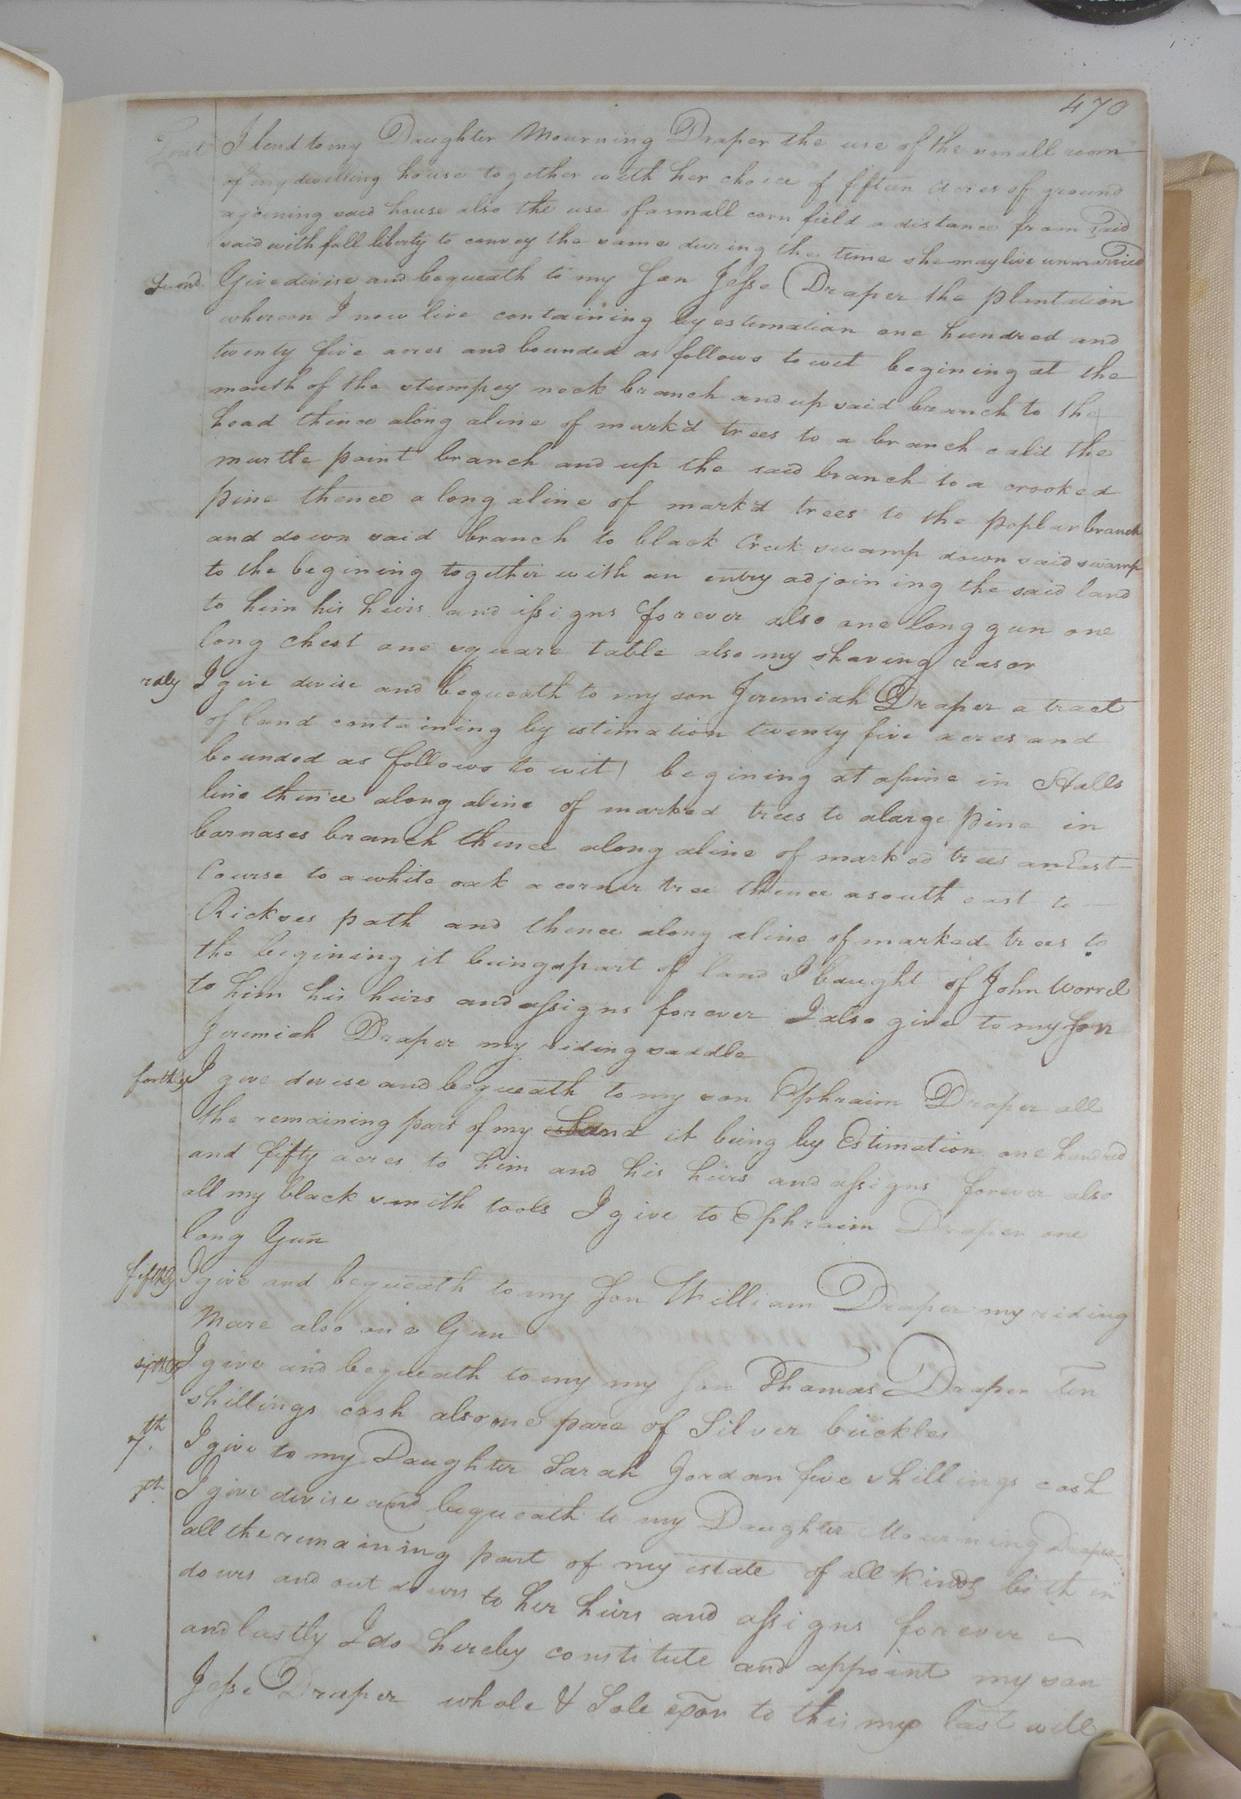 470
First I lend to my Daughter Mourning Draper the use of the small room
of my dwelling house together with her choice of fifteen acres of ground
ajoining said house also the use of a small corn field a distance from said
said with full liberty to convey the same during the time she may live unmarried
Second Give devise and bequeath to my Son Jesse Draper the plantation
whereon I now live containing by estimation one hundred and
twenty five acres and bounded as follows to wit begining at the
mouth of the stumpey neck branch and up said branch to the
head thence along aline of mark'd trees to a branch calld the
murtle point branch and up the said branch to a crooked
pine thence along aline of mark'd trees to the poplar branch
and down said branch to black Creek swamp down said swamp
to the begining together with an entry adjoining the said land
to him his heirs and assigns forever also one long gun one
long chest one square table also my shaving rasor
rdly I give devise and bequeath to my son Jeremiah Draper a tract
of land containing by estimation twenty five acres and
bounded as follows to wit begining at apine in Stalls
line thence along aline of marked trees to alarge pine in
barnases branch thence along aline of marked trees an East
Course to a white oak a corner tree thence a south east to
Rickses path and thence along aline of marked trees to
the begining it being apart of land I baught of John Worrel
to him his heirs and assigns forever I also give to my Son
Jeremiah Draper my riding saddle
forthly I give devise and bequeath to my son Ephraim Draper all
the remaining part of my Land it being by Estimation one hundred
and fifty acres to him and his heirs and assigns forever also
all my black smith tools I give to Ephraim Draper one
long Gun
fifthly I give and bequeath to my Son William Draper my riding
Mare also one Gun
sixthly I give and bequeath to my my Son Thomas Draper Ten
shillings cash also one pare of Silver buckles
7th I give to my Daughter Sarah Jordan five shillings cash
I give devise and bequeath to my Daughter Mourning Draper
all the remaining part of my estate of all kinds both in
dours and out dours to her heirs and assigns forever
and lastly I do hereby constitute and appoint my son
Jesse Draper whole & Sole exor to this my last will